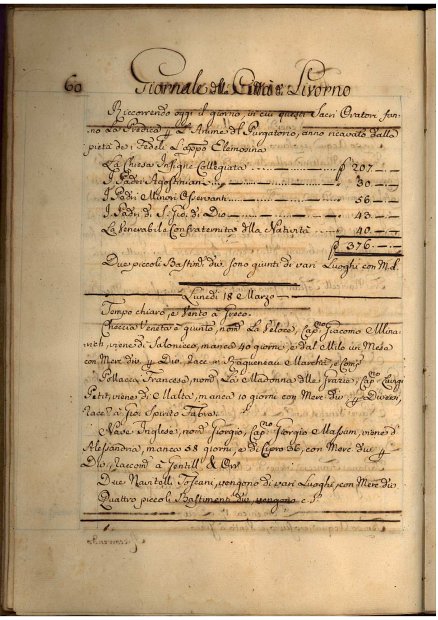 60 Giornale della Città di Livorno
Ricorrendo oggi il giorno, in cui questi Sacri Oratori fan-
no La Predica p L'Anime dl Purgatorio, anno ricavato dalla
pietà de' Fedeli L'appo Elemosina
La Chiesa Insigne Collegiata ₽ 207
I Padri Agostiniani 30
I Padri Minori Osservanti 56
I Padri di S. Gio. di Dio 43
La Venerabile Confraternita dlla Natività 40
₽ 376
Due piccoli Bastim.ti div. sono giunti di vari Luoghi con M.d.
Lunedi 18 Marzo
Tempo chiaro, e Vento a Greco.
Checcia Veneta è giunto nom.ta La Veloce, Cap.no Giacomo
viene di Salonicco, manca 40 giorni, e dal Milo in Mesa
con Merc. div. p Div. Racc. Ragueneau Marchi, e Comp.
Pollacca Francese, nom.ta La Madonna dlle Grazie, Cap.no Luigi
Petit, viene di Malta, manca 10 giorni con Merc. div. p Diversi,
Racc. a Gio. Spirito Fabre.
Nave Inglese, nom.ta Giorgio, Cap.no Giorgio Massam, viene d'
Alessandria, manca 58 giorni, e di Cipro 36, con Merc. div. p
Div., Raccom. a Gentill & Orr
Due Navicelli Toscani, vengono di vari Luoghi, con Merc. div.
Quattro piccoli Bastimenti div. vengono c. S.